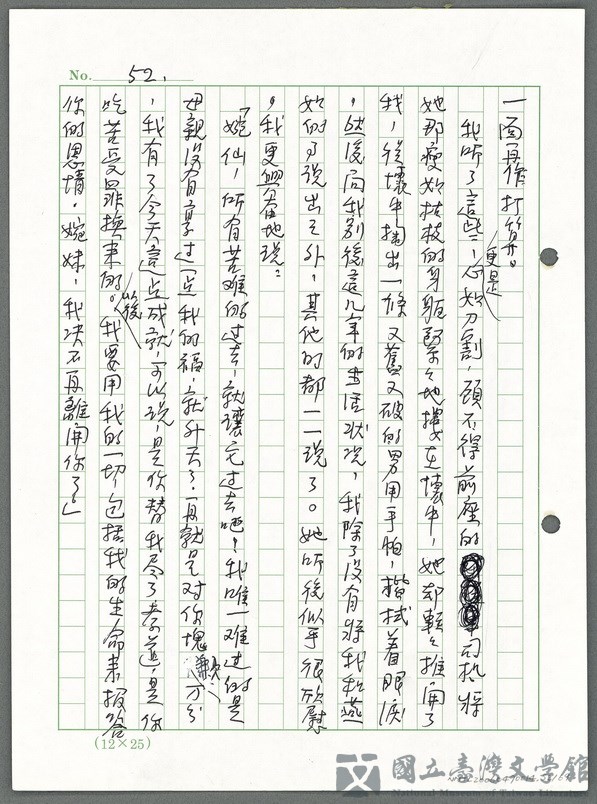 No. 52.
一面再作打算。
我听了這些,更是心如刀割,顧不得前座的司机,將
她那瘦如枯枝的身軀緊々地摟在懷中,她却輕々推開了
我,從懷中掏出一條又舊又破的男用手怕,揩拭着眼淚
,然後向我別後這几年的生活狀況,我除了沒有將我和燕
如的事說出之外,其他的都一一說了。她听後似乎很欣慰
,我更興奮地說:
「婉仙,所有苦难的过去,就讓它过去吧!我唯一难过的是
母親沒有享过一点我的福,就升天了。再就是对你愧歉万分
,我有了今天這点成就,可以說,是你替我尽了孝道,是你
吃苦受罪換来的。以後我要用我的一切包括我的生命来报答
你的恩情。婉妹,我决不再離開你了」
(12×25)
國立臺灣文學館
National Museum of Taiwan Literature